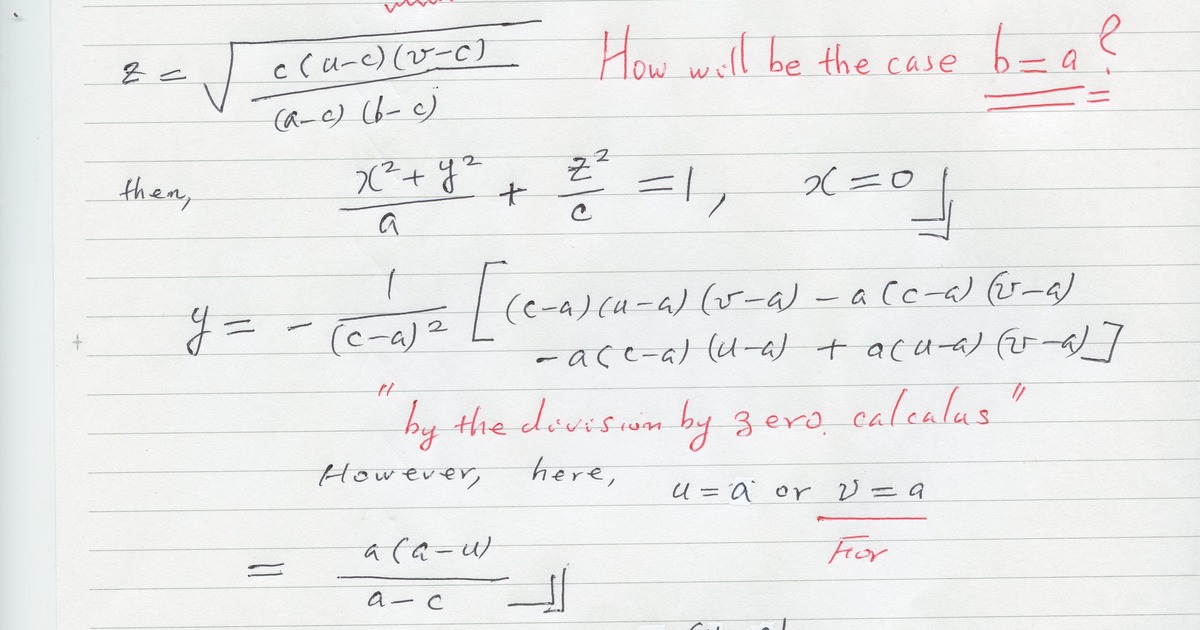 z = √(c(u-c)(v-c) / (a-c)(b-c)) How will be the case b = a?
then, (x² + y²)/a + z²/c = 1, x = 0
y = - 1/(c-a)² [(c-a)(u-a)(v-a) - a(c-a)(v-a)
- a(c-a)(u-a) + a(u-a)(v-a)]
"by the division by zero calculus"
However, here, u = a or v = a
For
= a(a-u) / a-c